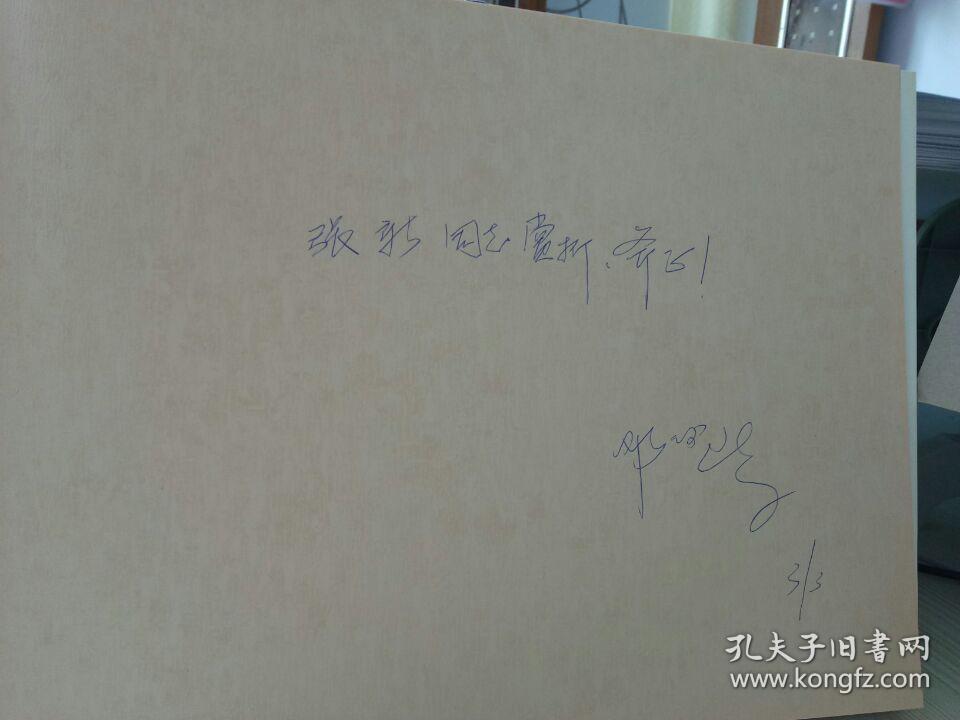 张新同志赏析、斧正!
3/3
孔夫子旧书网
www.kongfz.com